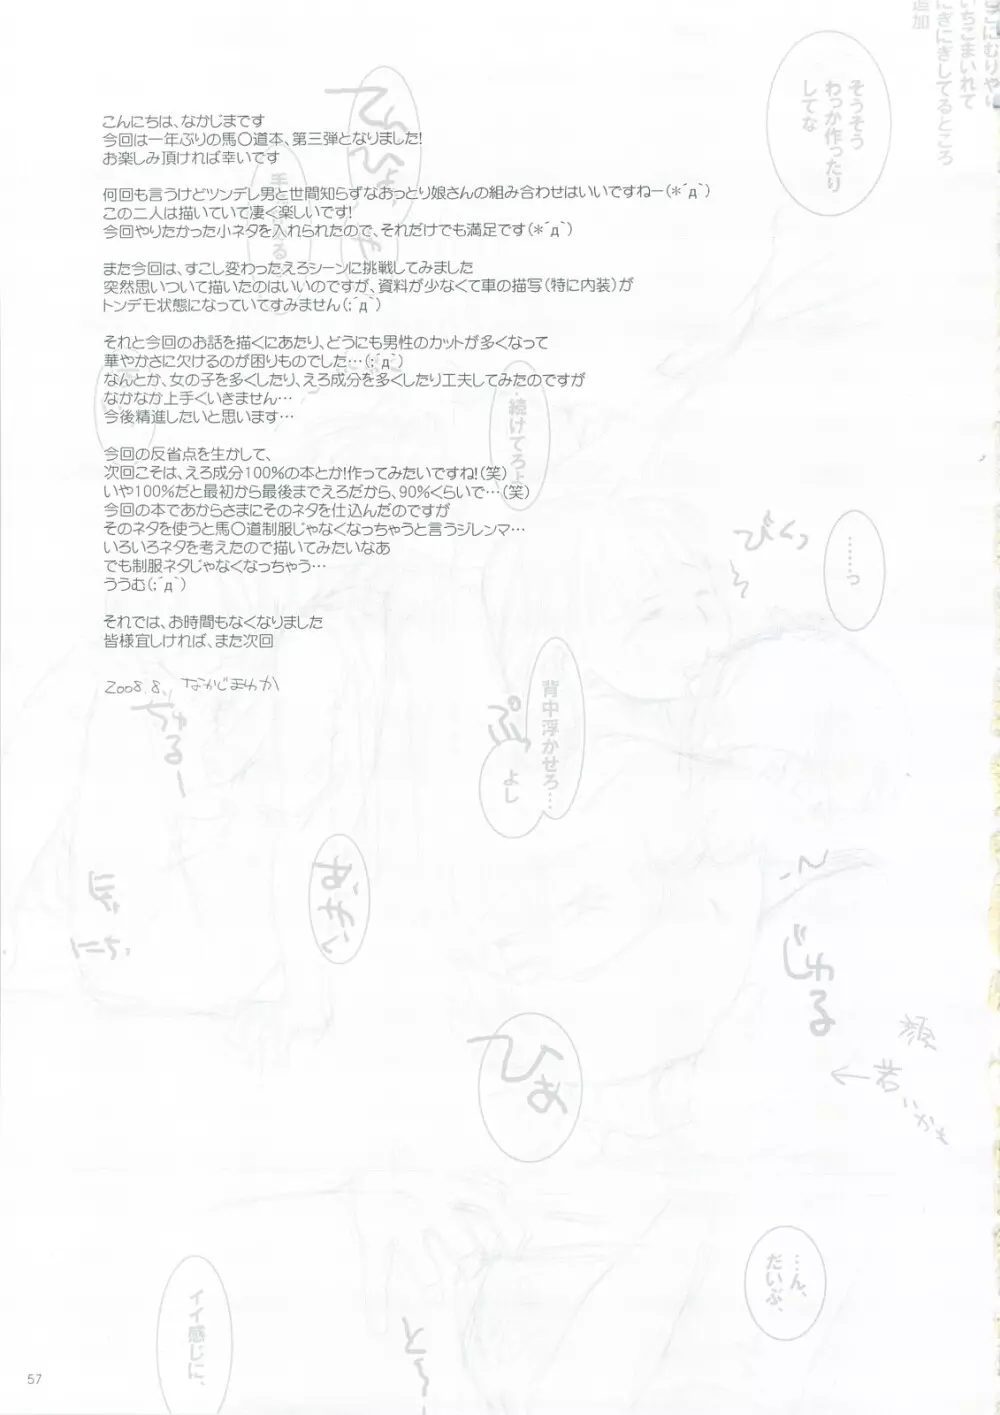 こんにちは、なかじまです
今回は一年ぶりの馬〇道本、第三弾となりました!
お楽しみ頂ければ幸いです
何回も言うけどツンデレ男と世間知らずなおっとり娘さんの組み合わせはいいですねー(*´д`)
この二人は描いていて凄く楽しいです!
今回やりたかった小ネタを入れられたので、それだけでも満足です(*´д`)
また今回は、すこし変わったえろシーンに挑戦してみました
突然思いついて描いたのはいいのですが、資料が少なくて車の描写(特に内装)が
トンデモ状態になっていてすみません(;´д`)
それと今回のお話を描くにあたり、どうにも男性のカットが多くなって
華やかさに欠けるのが困りものでした…(;´д`)
なんとか、女の子を多くしたり、えろ成分を多くしたり工夫してみたのですが
なかなか上手くいきません…
今後精進したいと思います…
今回の反省点を生かして、
次回こそは、えろ成分100%の本とか!作ってみたいですね!(笑)
いや100%だと最初から最後までえろだから、90%くらいで…(笑)
今回の本であからさまにそのネタを仕込んだのですが
そのネタを使うと馬〇道制服じゃなくなっちゃうと言うジレンマ…
いろいろネタを考えたので描いてみたいなあ
でも制服ネタじゃなくなっちゃう…
ううむ(;´д`)
それでは、お時間もなくなりました
皆様宜しければ、また次回
2008.8. なかじまゆか
いちごまいれて
にぎにぎしてるところ
追加
そうそう
わっか作ったり
してな
…続けてろよ
びくっ
………っ
背中浮かせろ…
よし
ぷっ
ちゅるー
じゅる
ひぁ
…ん、
だいぶ、
イイ感じに、
と〜
57